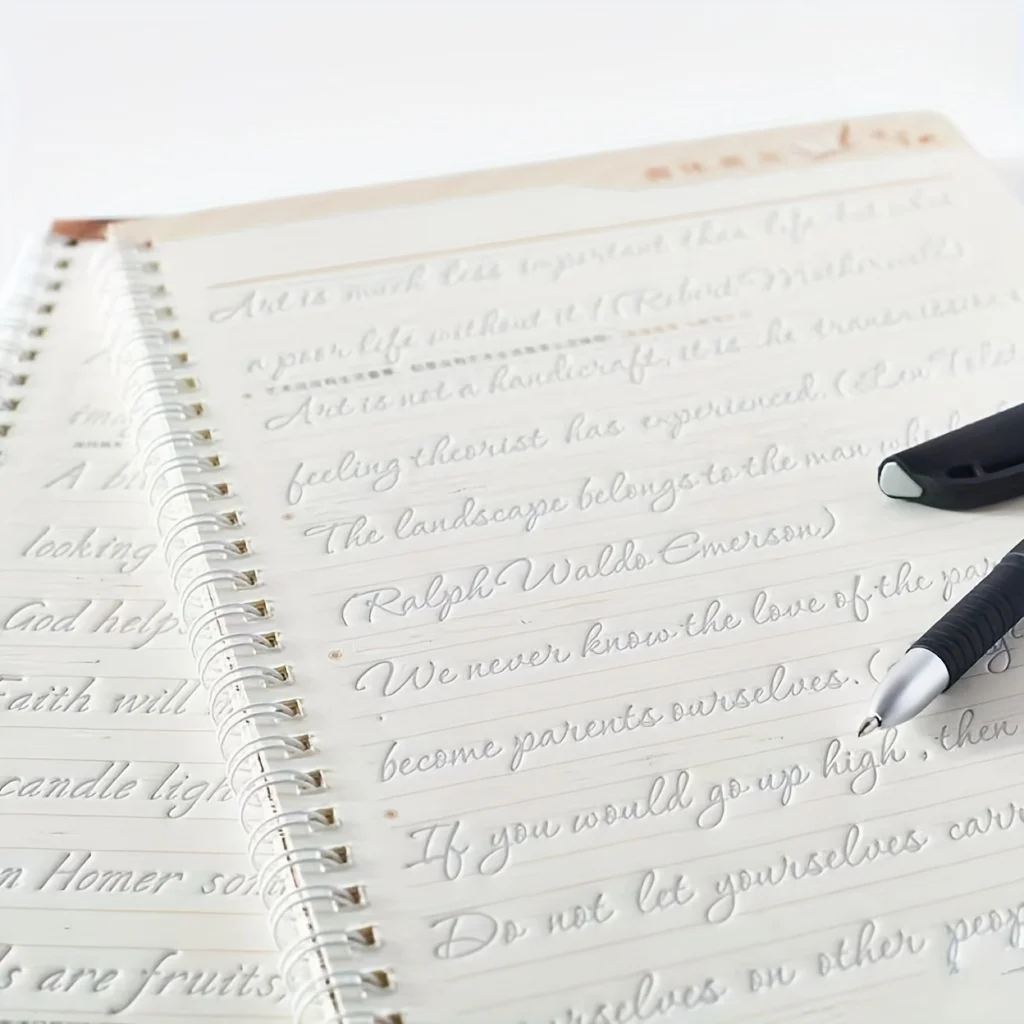 Art is much less important than life but what
a poor life without it! (Robert Motherwell)
Art is not a handicraft, it is the transmission
feeling theorist has experienced. (Leo Tolst
The landscape belongs to the man who
(Ralph Waldo Emerson)
We never know the love of the par
become parents ourselves. (
If you would go up high, then
Do not let yourselves carr
urselves on other peop
A bl
looking
God help
Faith will
candle ligh
n Homer som
ls are fruits,